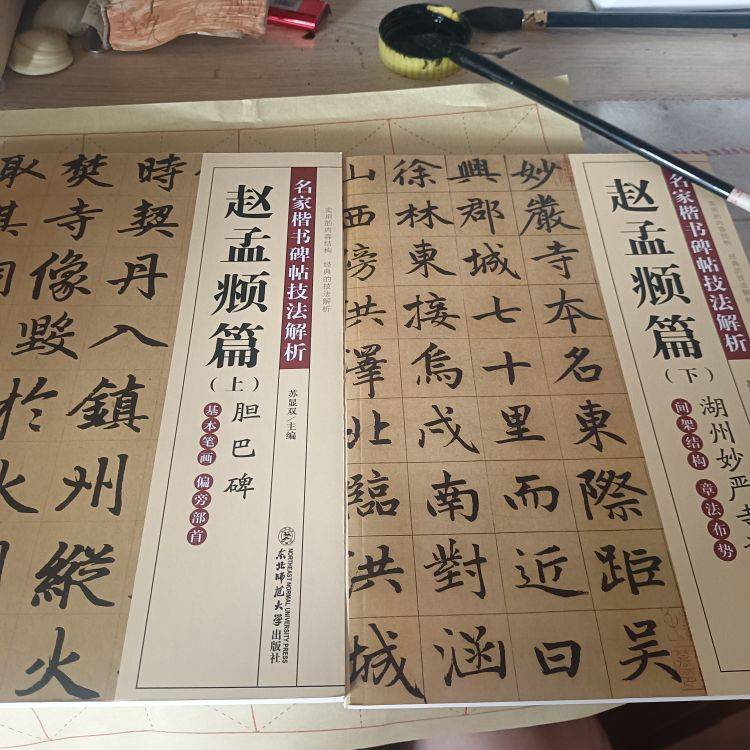 名家楷书碑帖技法解析
实用的内容结构 经典的技法解析
赵孟𫖯篇
(上)
胆巴碑
基本笔画 偏旁部首
苏显双/主编
NORTHEAST NORMAL UNIVERSITY PRESS
东北师范大学出版社
時契丹入鎮州縱火
焚寺像毀於火
取其
名家楷书碑帖技法解析
实用的内容结构 经典的技法解析
赵孟𫖯篇
(下)
湖州妙严寺
间架结构 章法布势
妙嚴寺本名東際距吳
興郡城七十里而近曰
徐林東接烏戍南對涵
山西傍洪澤北臨洪城